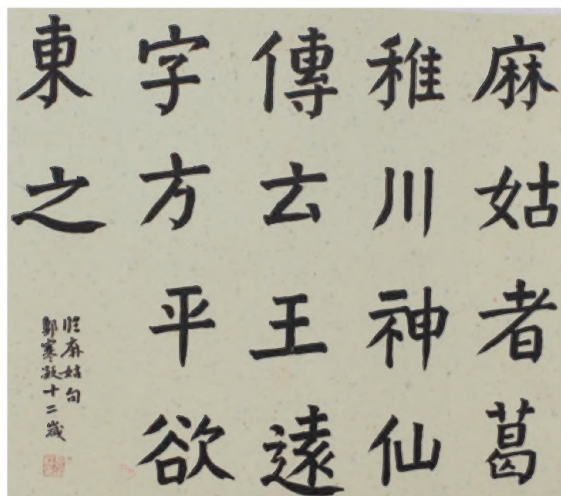 麻姑者葛
稚川神仙
傳云王遠
字方平欲
東之
臨麻姑句
郭寒凝十二歲